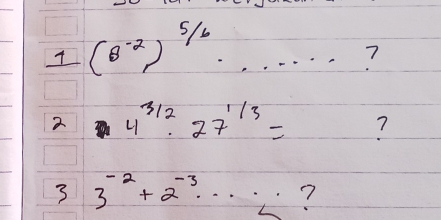 1 (8^-2)^5/6 ........ ?
2 4^3/2 . 27^1/3 = ?
3 3^-2 + 2^-3 ..... ?